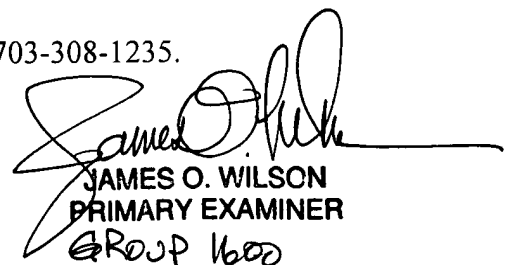 703-308-1235.
James O. Wilson
JAMES O. WILSON
PRIMARY EXAMINER
GROUP 1600